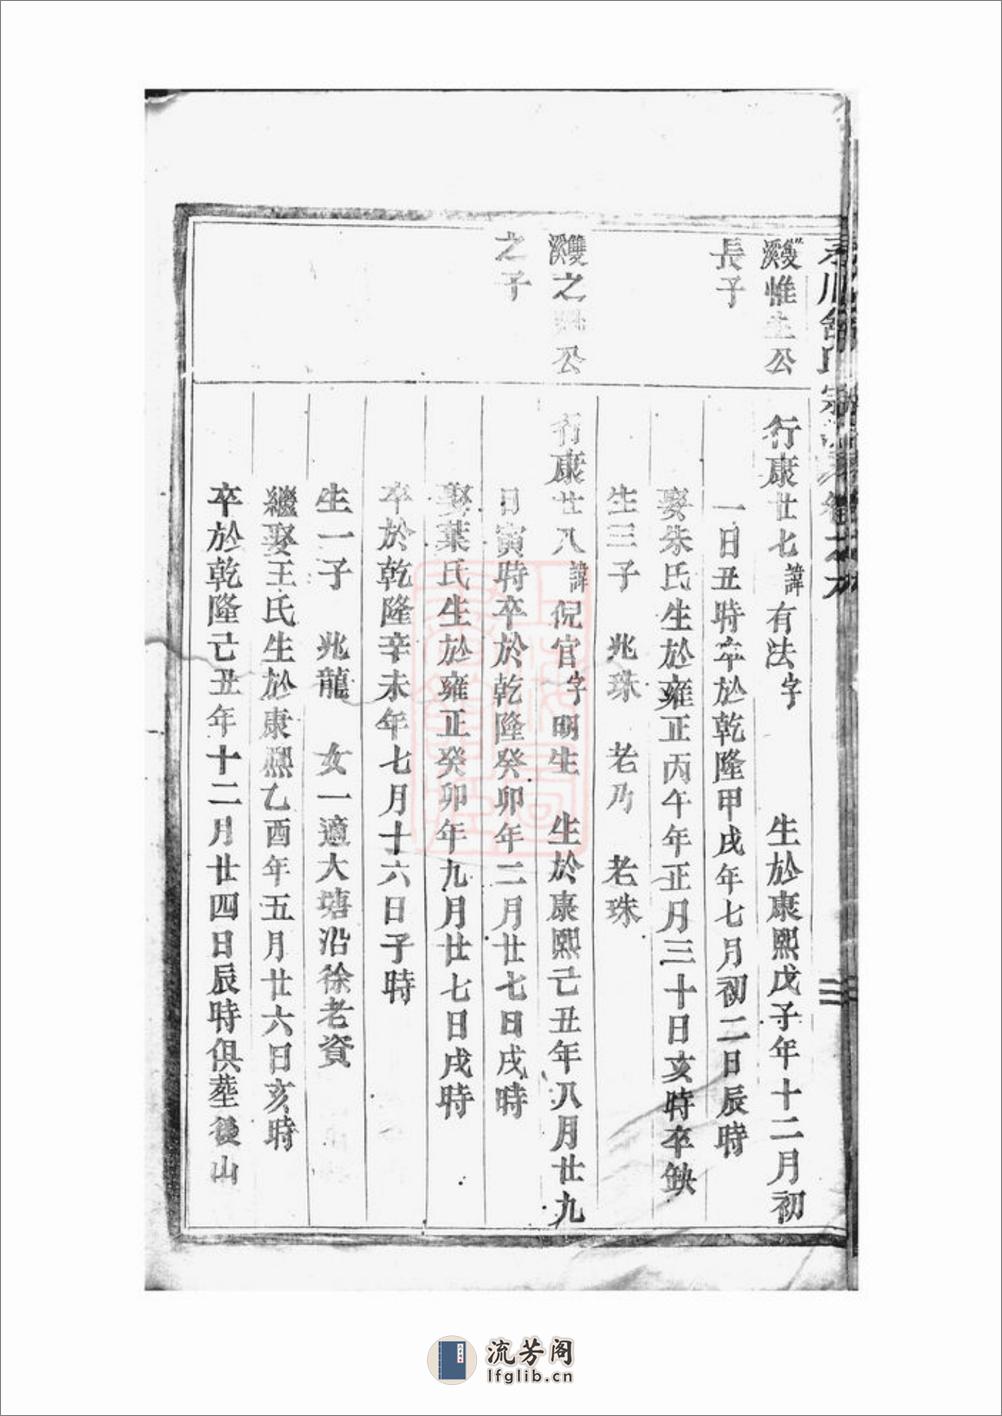 雙溪惟土公
長子
行康廿七諱有法字 生於康熙戊子年十二月初
一日丑時卒於乾隆甲戌年七月初二日辰時
娶朱氏生於雍正丙午年正月三十日亥時卒缺
生三子 兆珠 老乃 老珠
雙溪之公
之子
行康廿八諱倪官字明生 生於康熙己丑年八月廿九
日寅時卒於乾隆癸卯年二月廿七日戌時
娶葉氏生於雍正癸卯年九月廿七日戌時
卒於乾隆辛未年七月十六日子時
生一子 兆龍 女一適大塘沿徐老資
繼娶王氏生於康熙乙酉年五月廿六日亥時
卒於乾隆己丑年十二月廿四日辰時俱葬後山
流芳阁
lfglib.cn